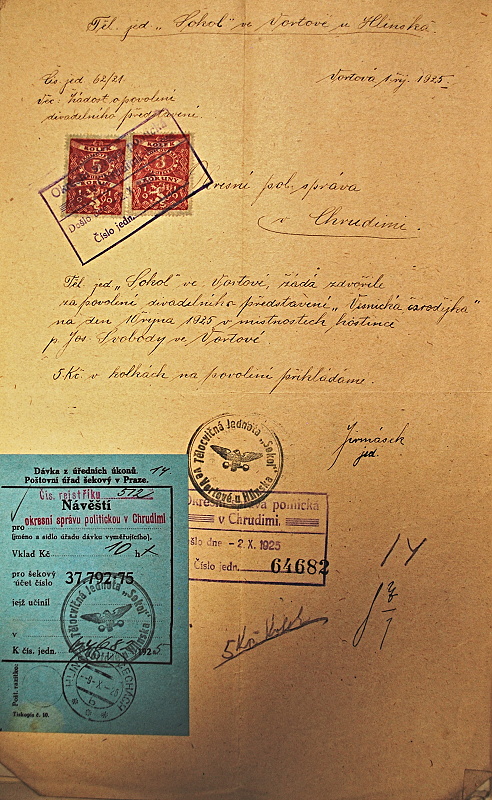 Těl. jed. „Sokol" ve Vortové u Hlinska.
Čís. jed 62/21.
Vortová 1. říj. 1925.
Věc: Žádost o povolení
divadelního představení.
KOLEK
5
KORUN
KOLEK
3
KORUNY
Došlo
Číslo jedn.
Okresní pol. správa
v Chrudimi.
Těl. jed. „Sokol" ve Vortové, žádá zdvořile
za povolení divadelního představení „Vesnická čarodějka"
na den 10 října 1925 v místnostech hostince
p. Jos. Svobody ve Vortové.
5 Kč. v kolkách na povolení přikládáme.
Jirmásek
jed.
Tělocvičná Jednota „Sokol"
ve Vortové u Hlinska
Okresní správa politická
v Chrudimi.
Došlo dne - 2. X. 1925
Číslo jedn. 64682
14
Dávka z úředních úkonů. 14.
Poštovní úřad šekový v Praze.
Čís. rejstříku 572
Návěští
pro okresní správu politickou v Chrudimi
(jméno a sídlo úřadu dávku vyměřujícího).
Vklad Kč 10 h
pro šekový
účet číslo 37.792.75
jejž učinil
Tělocvičná Jednota „Sokol"
ve Vortové u Hlinska
v
K čís. jedn. 192
Pošt. razítko:
-9-X-25
Tiskopis č. 10.